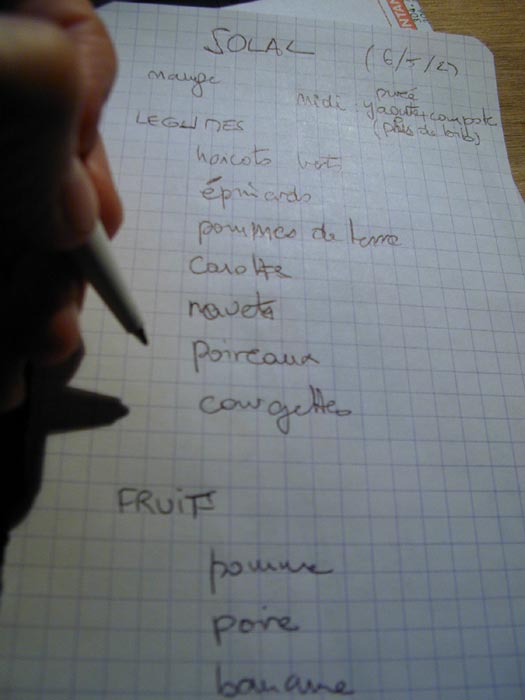 SOLAL
mange
midi purée
yaourt compote
(plus de bib)
LEGUMES
haricots verts
épinards
pommes de terre
carotte
navets
poireaux
courgettes
FRUITS
pomme
poire
banane